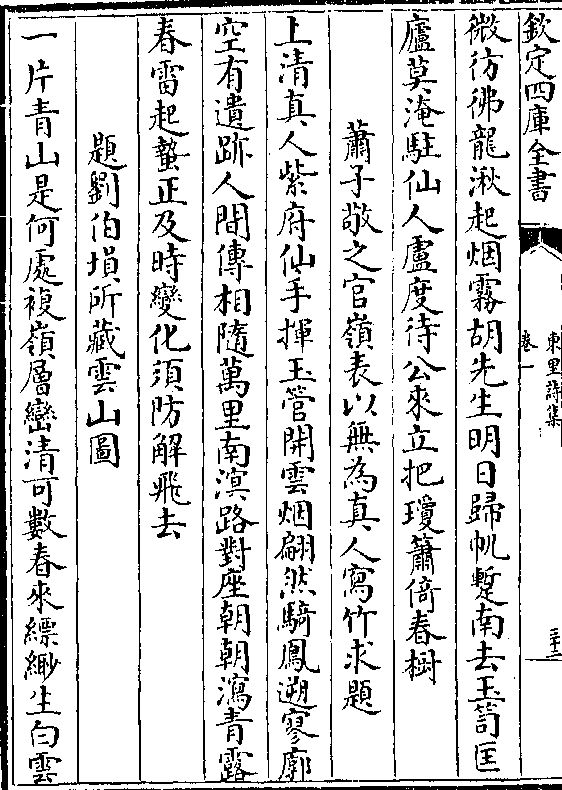 欽定四庫全書
東里詩集
卷一
三十二
微彷彿龍湫起烟霧胡先生明日歸帆蹔南去玉笥匡
廬莫淹駐仙人盧度待公來立把瓊簫倚春樹
蕭子敬之官嶺表以無為真人寫竹求題
上清真人紫府仙手揮玉管開雲烟翩然騎鳳遡寥廓
空有遺跡人間傳相隨萬里南溟路對座朝朝瀉青露
春雷起蟄正及時變化須防解飛去
題劉伯塤所藏雲山圖
一片青山是何處複嶺層巒清可數春來縹緲生白雲